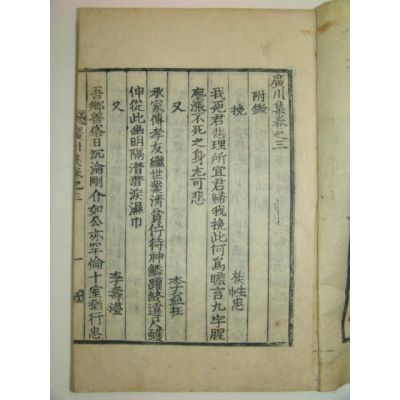 廣川集卷之三
附錄
挽 族忠
我死君悲理所宜君歸我挽此何爲瞻言九字腥
塵漲不死之身尤可悲
又 李益柱
承家傳孝友繼世業淸貧佇待神鱗躍終違尺蠖
伸從此幽明隔潸潸淚濕巾
又 李壽瀅
吾鄕善俗日沉淪剛介如公亦罕倫十室猶行忠
廣川集卷之三 一